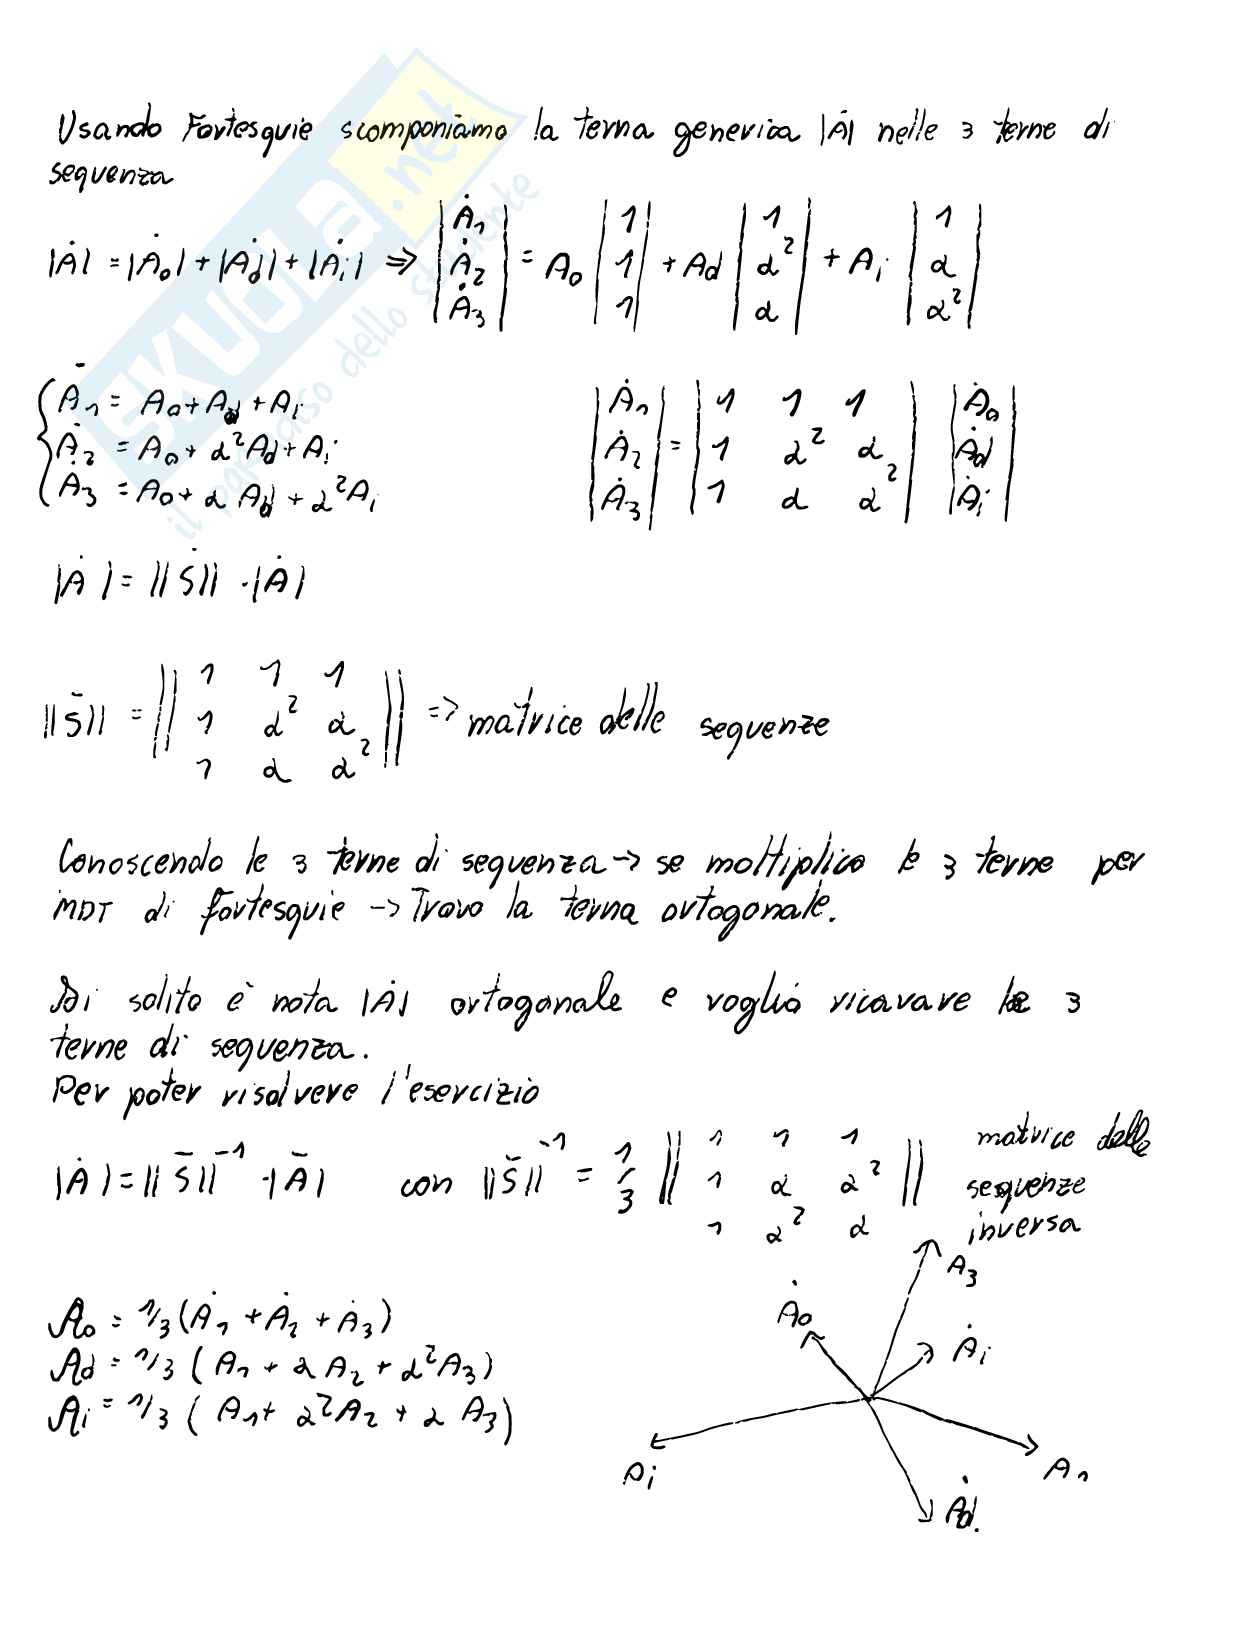 Usando Fortesquie scomponiamo la terna generica |Ȧ| nelle 3 terne di
sequenza
|Ȧ| = |Ȧ₀| + |Ȧd| + |Ȧi| ⇒ |Ȧ₁ Ȧ₂ Ȧ₃| = A₀ |1 1 1| + Ad |1 α² α| + Ai |1 α α²|
Ȧ₁ = A₀ + Ad + Ai
Ȧ₂ = A₀ + α²Ad + Ai
Ȧ₃ = A₀ + α Ad + α²Ai
|Ȧ₁| = |1 1 1| |Ȧ₀|
|Ȧ₂| = |1 α² α| |Ȧd|
|Ȧ₃| = |1 α α²| |Ȧi|
|Ȧ| = ||Ṡ|| · |Ȧ|
||S̄|| = || 1 1 1
1 α² α
1 α α² || => matrice delle sequenze
Conoscendo le 3 terne di sequenza -> se moltiplico le 3 terne per
MDT di fortesquie -> Trovo la terna ortogonale.
Di solito è nota |Ȧ| ortogonale e voglio ricavare le 3
terne di sequenza.
Per poter risolvere l'esercizio
|Ȧ| = ||S̄||⁻¹ · |Ā| con ||S̄||⁻¹ = 1/3 || 1 1 1
1 α α²
1 α² α ||
matrice delle
sequenze
inversa
A₀ = 1/3 (Ȧ₁ + Ȧ₂ + Ȧ₃)
Ad = 1/3 (A₁ + α A₂ + α²A₃)
Ai = 1/3 (A₁ + α²A₂ + α A₃)
A₃
Ȧ₀
Ȧi
Ai
A₁
Ȧd.
SKUOLA.net
il paradiso dello studente